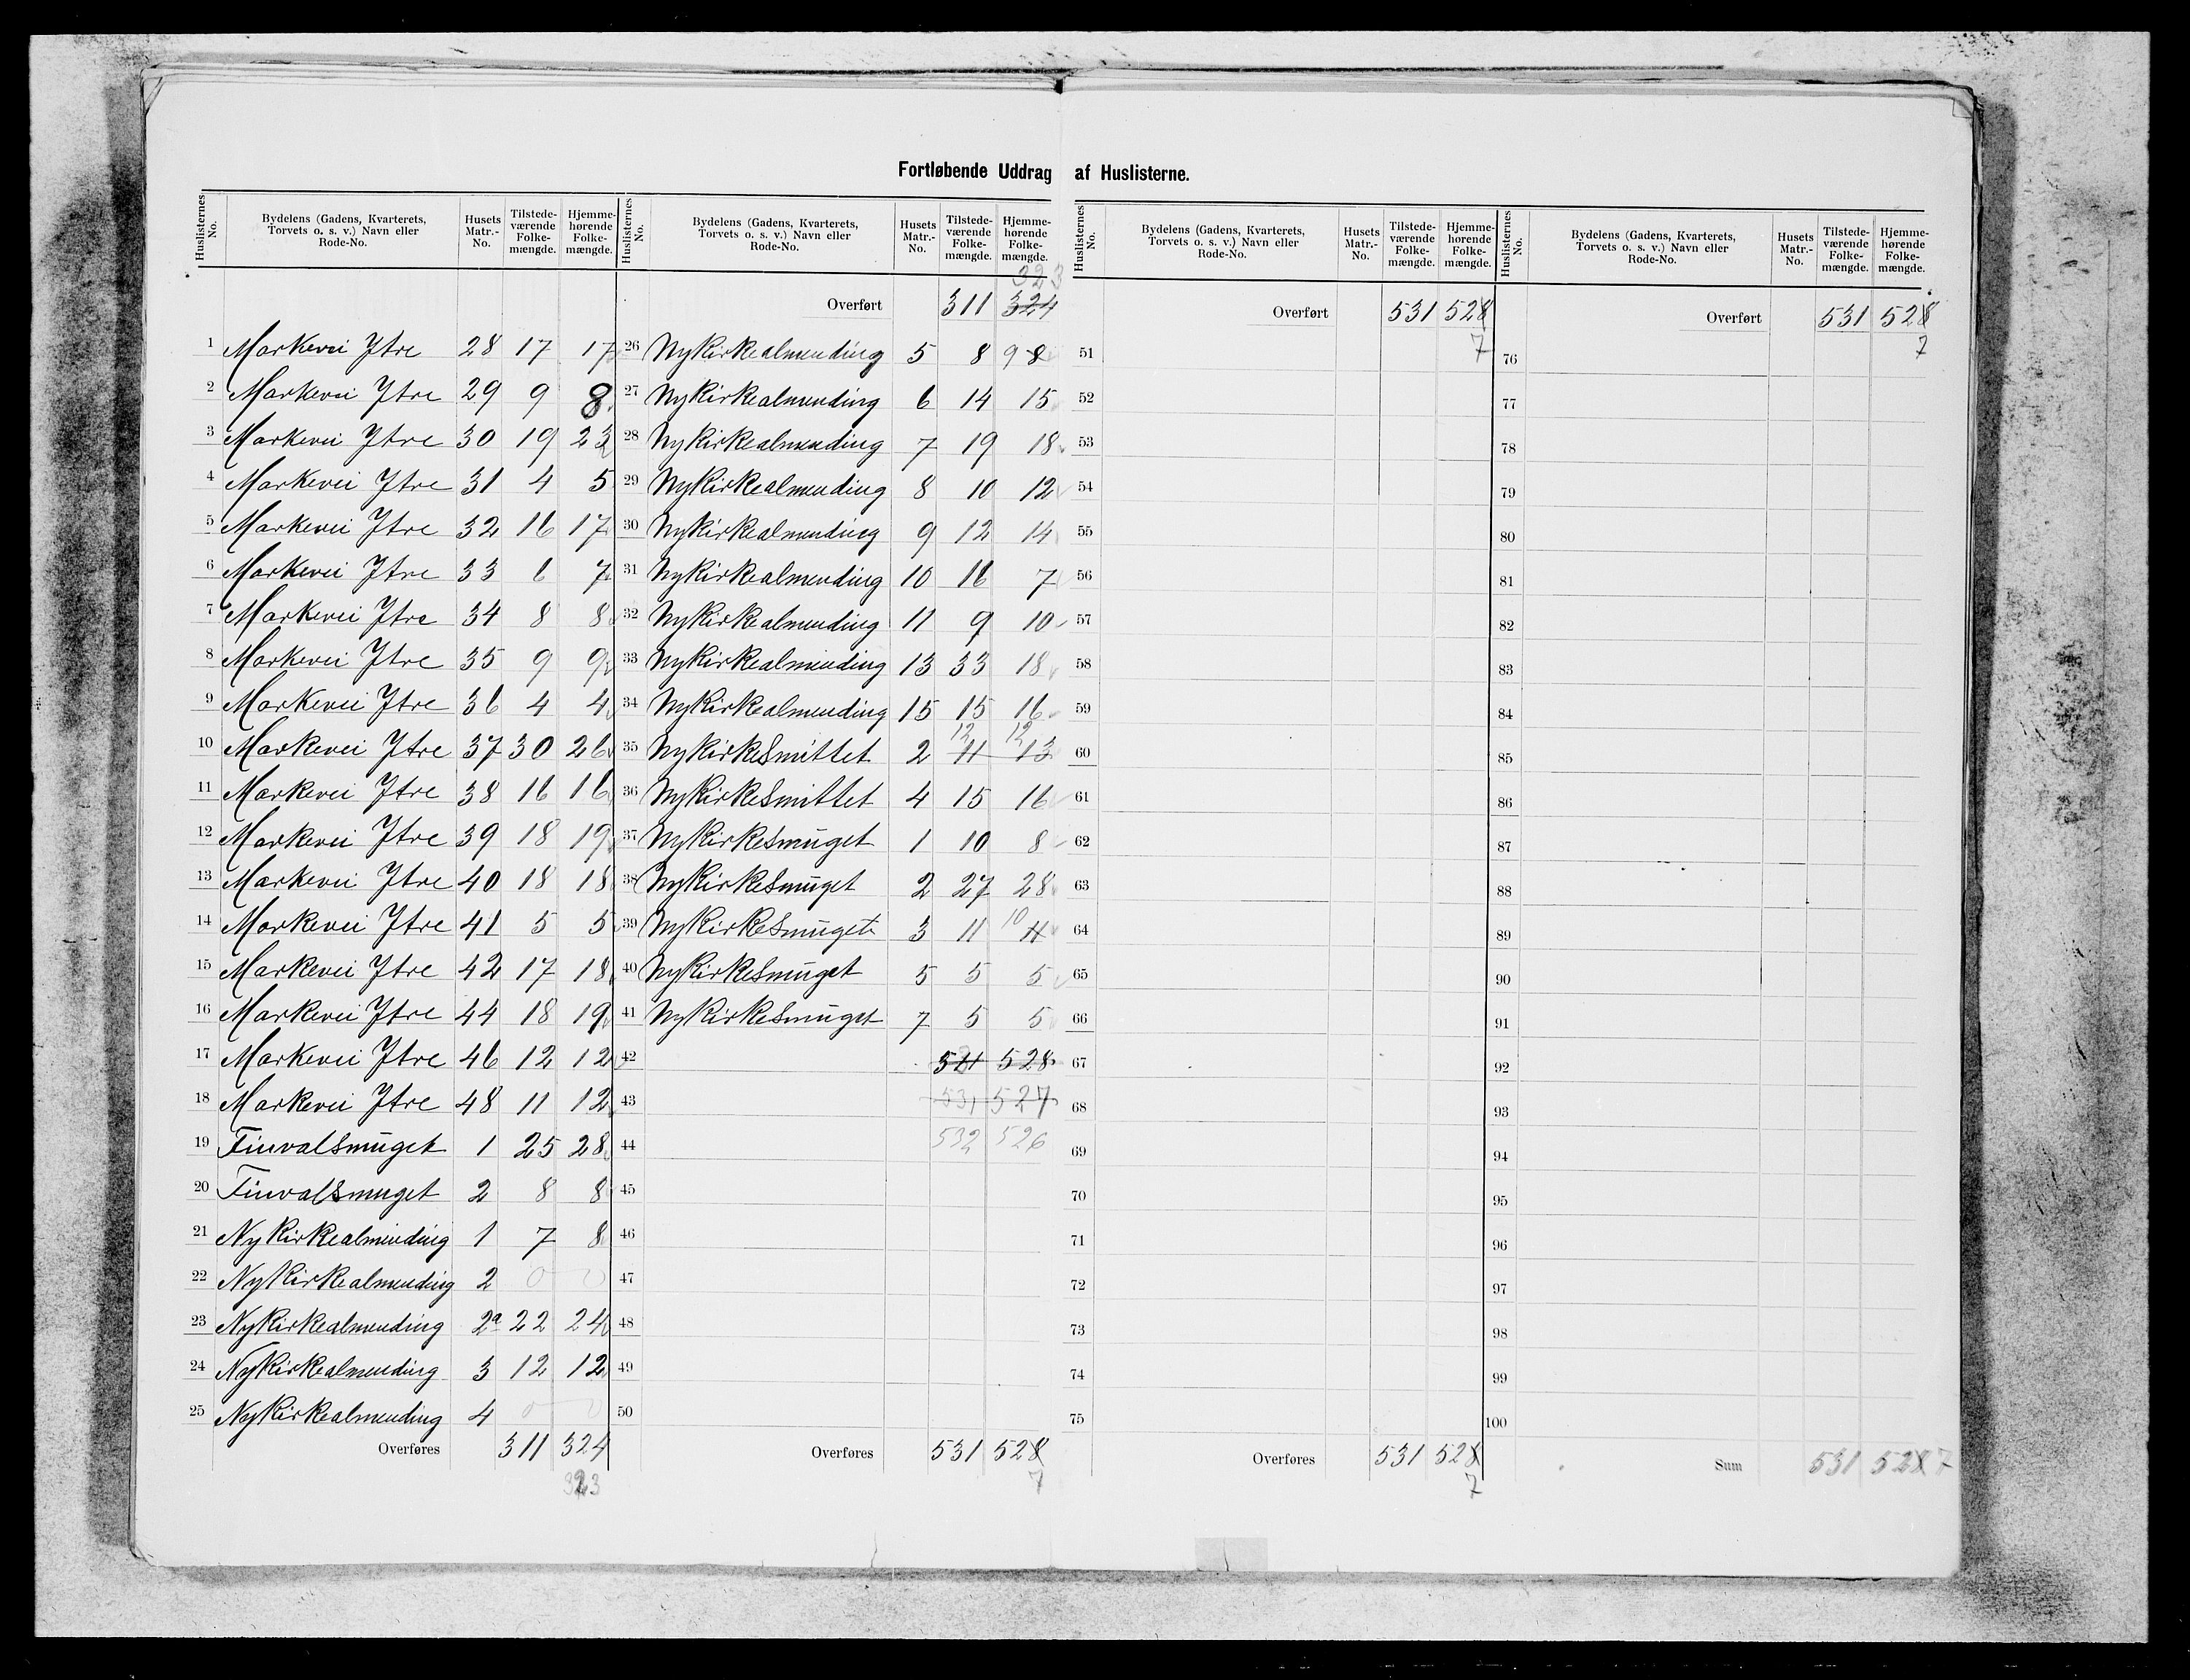 Fortløbende Uddrag af Huslisterne.
Huslisternes No. | Bydelens (Gadens, Kvarterets, Torvets o. s. v.) Navn eller Rode-No. | Husets Matr.-No. | Tilstede-værende Folke-mængde. | Hjemme-hørende Folke-mængde.
1 Markevei Ytre 28 17 17
2 Markevei Ytre 29 9 8
3 Markevei Ytre 30 19 23
4 Markevei Ytre 31 4 5
5 Markevei Ytre 32 16 17
6 Markevei Ytre 33 6 7
7 Markevei Ytre 34 8 8
8 Markevei Ytre 35 9 9
9 Markevei Ytre 36 4 4
10 Markevei Ytre 37 30 26
11 Markevei Ytre 38 16 16
12 Markevei Ytre 39 18 19
13 Markevei Ytre 40 18 18
14 Markevei Ytre 41 5 5
15 Markevei Ytre 42 17 18
16 Markevei Ytre 44 18 19
17 Markevei Ytre 46 12 12
18 Markevei Ytre 48 11 12
19 Finvalsmuget 1 25 28
20 Finvalsmuget 2 8 8
21 Nykirkealmending 1 7 8
22 Nykirkealmending 2 0 0
23 Nykirkealmending 2a 22 24
24 Nykirkealmending 3 12 12
25 Nykirkealmending 4 0 0
Overføres 311 324
323
Huslisternes No. | Bydelens (Gadens, Kvarterets, Torvets o. s. v.) Navn eller Rode-No. | Husets Matr.-No. | Tilstede-værende Folke-mængde. | Hjemme-hørende Folke-mængde.
323
Overført 311 324
26 Nykirkealmending 5 8 9 8
27 Nykirkealmending 6 14 15
28 Nykirkealmending 7 19 18
29 Nykirkealmending 8 10 12
30 Nykirkealmending 9 12 14
31 Nykirkealmending 10 16 7
32 Nykirkealmending 11 9 10
33 Nykirkealmending 13 33 18
34 Nykirkealmending 15 15 16
12 12
35 NykirkeSmittet 2 11 13
36 NykirkeSmittet 4 15 16
37 Nykirkesmuget 1 10 8
38 Nykirkesmuget 2 27 28
39 Nykirkesmuget 3 11 10 11
40 Nykirkesmuget 5 5 5
41 Nykirkesmuget 7 5 5
42 531 528
43 531 527
44 532 526
45
46
47
48
49
50
Overføres 531 528
7
Huslisternes No. | Bydelens (Gadens, Kvarterets, Torvets o. s. v.) Navn eller Rode-No. | Husets Matr.-No. | Tilstede-værende Folke-mængde. | Hjemme-hørende Folke-mængde.
Overført 531 528
7
51
52
53
54
55
56
57
58
59
60
61
62
63
64
65
66
67
68
69
70
71
72
73
74
75
Overføres 531 528
7
Huslisternes No. | Bydelens (Gadens, Kvarterets, Torvets o. s. v.) Navn eller Rode-No. | Husets Matr.-No. | Tilstede-værende Folke-mængde. | Hjemme-hørende Folke-mængde.
Overført 531 528
7
76
77
78
79
80
81
82
83
84
85
86
87
88
89
90
91
92
93
94
95
96
97
98
99
100
Sum 531 528 7